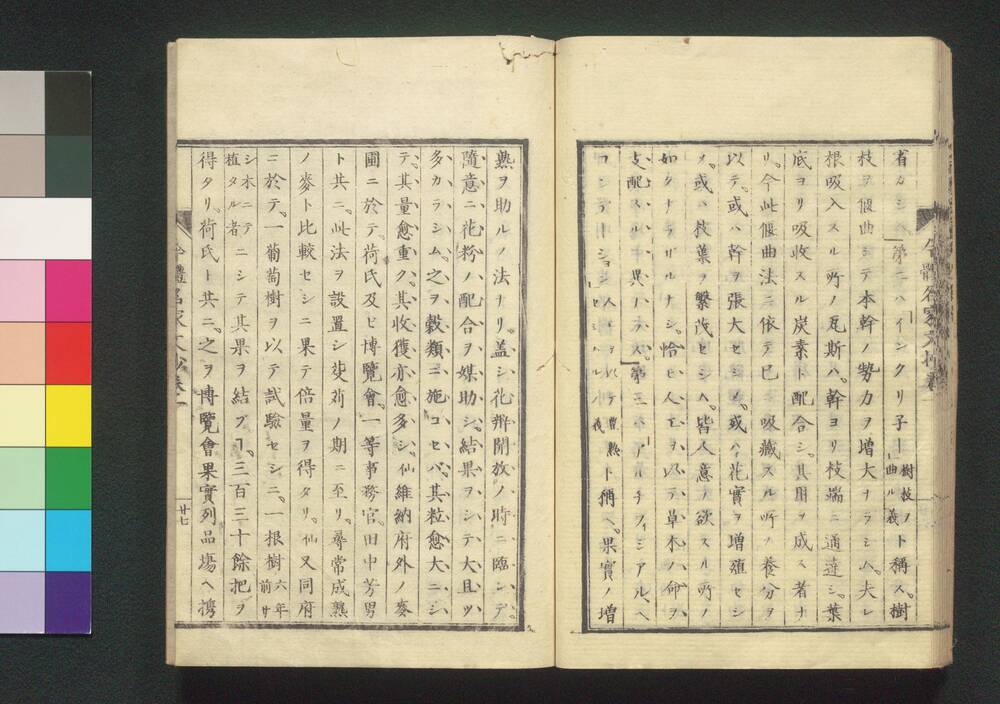 省カシム「第二ハ「インクリ子ー」樹枝ノ曲ル義ト稱ス。樹
枝ヲ偃曲シテ本幹ノ勢力ヲ増大ナラシム、夫レ
根吸入スル所ノ瓦斯ハ、幹ヨリ枝端ニ通達シ。葉
底ヨリ吸收スル炭素ト配合シ。其用ヲ成ス者ナ
リ。今此偃曲法ニ依テ已ニ吸藏スル所ノ養分ヲ
以テ。或ハ幹ヲ張大セシメ。或ハ花實ヲ増殖セシ
メ。或ハ枝葉ヲ繁茂セシム。皆人意ノ欲スル所ノ
如クナラザルナシ。恰モ人工ヲ以テ草木ノ命ヲ
支配スルニ異ナラス。「第三ハ「アルチフィシアル、ヘ
コンデーション」人工ヲ以テ豊熟セシムル義ト稱ヘ。果實ノ増
熟ヲ助ルノ法ナリ。盖シ花瓣開放ノ時ニ臨ンデ。
隨意ニ花粉ノ配合ヲ媒助シ。結果ヲシテ大且ツ
多カラシム。之ヲ穀類ニ施コセバ。其粒愈大ニシ
テ。其量愈重ク。其收獲亦愈多シ。仙維納府外ノ麥
圃ニ於テ。荷氏及ビ博覽會一等事務官。田中芳男
ト共ニ。此法ヲ設置シ芟刈ノ期ニ至リ。尋常成熟
ノ麥ト比較セシニ果テ倍量ヲ得タリ。仙又同府
ニ於テ。一葡萄樹ヲ以テ試驗セシニ。一根樹六年前サ
シ木ニテ植タル者ニシテ其果ヲ結ブヿ。三百三十餘把ヲ
得タリ。荷氏ト共ニ。之ヲ博覽會果實列品塲ヘ携
廿七